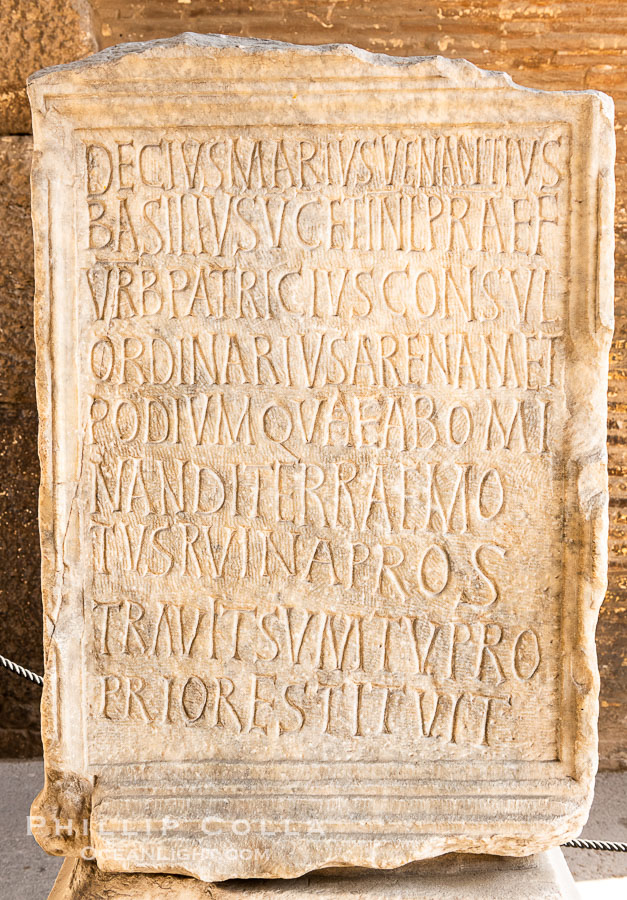 DECIVSMARIVSVENANTIVS
BASILIVSVCETINLPRAEF
VRBPATRICIVSCONSVL
ORDINARIVSARENAMET
PODIVMQVAEABOMI
NANDITERRAEMO
TVSRVINAPROS
TRAVITSVMTVPRO
PRIORESTITVIT
PHILLIP COLLA
OCEANLIGHT.COM